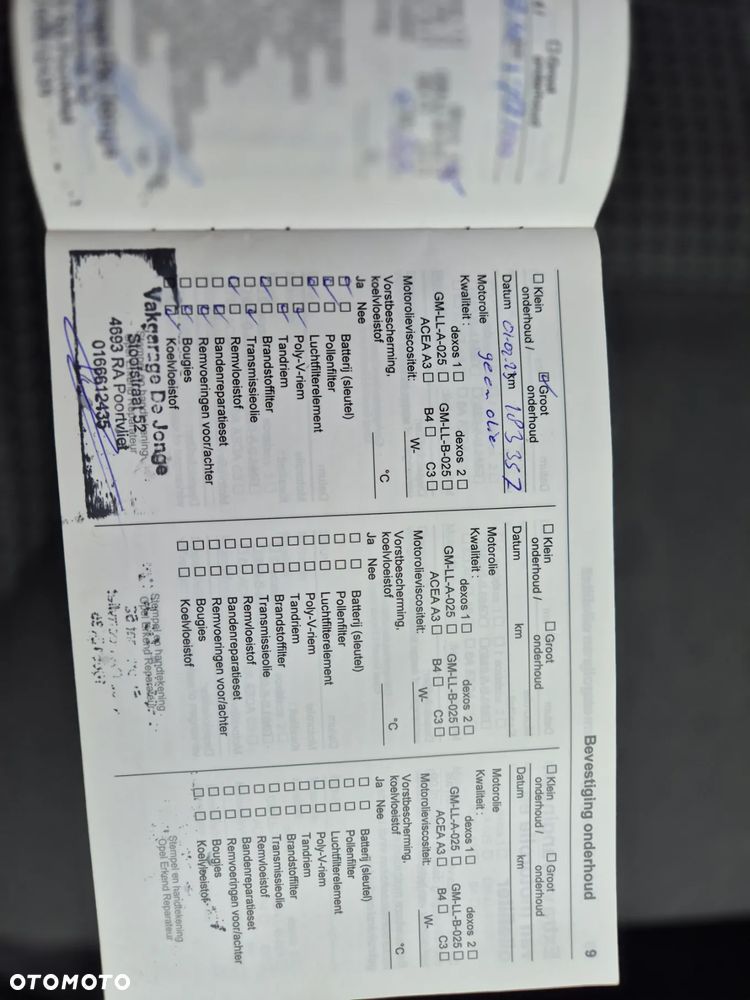 Bevestiging onderhoud 9
☐ Klein onderhoud / ☑ Groot onderhoud
Datum 01-02-23 km 183 357
Motorolie geen olie
Kwaliteit : dexos 1 ☐ dexos 2 ☐
GM-LL-A-025 ☐ GM-LL-B-025 ☐
ACEA A3 ☐ B4 ☐ C3 ☐
Motorolieviscositeit: W-
Vorstbescherming,
koelvloeistof °C
Ja Nee
Batterij (sleutel)
Pollenfilter
Luchtfilterelement
Poly-V-riem
Tandriem
Brandstoffilter
Transmissieolie
Remvloeistof
Bandenreparatieset
Remvoeringen voor/achter
Bougies
Koelvloeistof
Vakgarage De Jonge
Stoofstraat 52
4693 RA Poortvliet
0166612435
☐ Klein onderhoud / ☐ Groot onderhoud
Datum km
Motorolie
Kwaliteit : dexos 1 ☐ dexos 2 ☐
GM-LL-A-025 ☐ GM-LL-B-025 ☐
ACEA A3 ☐ B4 ☐ C3 ☐
Motorolieviscositeit: W-
Vorstbescherming,
koelvloeistof °C
Ja Nee
☐ ☐ Batterij (sleutel)
☐ ☐ Pollenfilter
☐ ☐ Luchtfilterelement
☐ ☐ Poly-V-riem
☐ ☐ Tandriem
☐ ☐ Brandstoffilter
☐ ☐ Transmissieolie
☐ ☐ Remvloeistof
☐ ☐ Bandenreparatieset
☐ ☐ Remvoeringen voor/achter
☐ ☐ Bougies
☐ ☐ Koelvloeistof
Stempel en handtekening
Opel Erkend Reparateur
☐ Klein onderhoud / ☐ Groot onderhoud
Datum km
Motorolie
Kwaliteit : dexos 1 ☐ dexos 2 ☐
GM-LL-A-025 ☐ GM-LL-B-025 ☐
ACEA A3 ☐ B4 ☐ C3 ☐
Motorolieviscositeit: W-
Vorstbescherming,
koelvloeistof °C
Ja Nee
☐ ☐ Batterij (sleutel)
☐ ☐ Pollenfilter
☐ ☐ Luchtfilterelement
☐ ☐ Poly-V-riem
☐ ☐ Tandriem
☐ ☐ Brandstoffilter
☐ ☐ Transmissieolie
☐ ☐ Remvloeistof
☐ ☐ Bandenreparatieset
☐ ☐ Remvoeringen voor/achter
☐ ☐ Bougies
☐ ☐ Koelvloeistof
Stempel en handtekening
Opel Erkend Reparateur
OTOMOTO